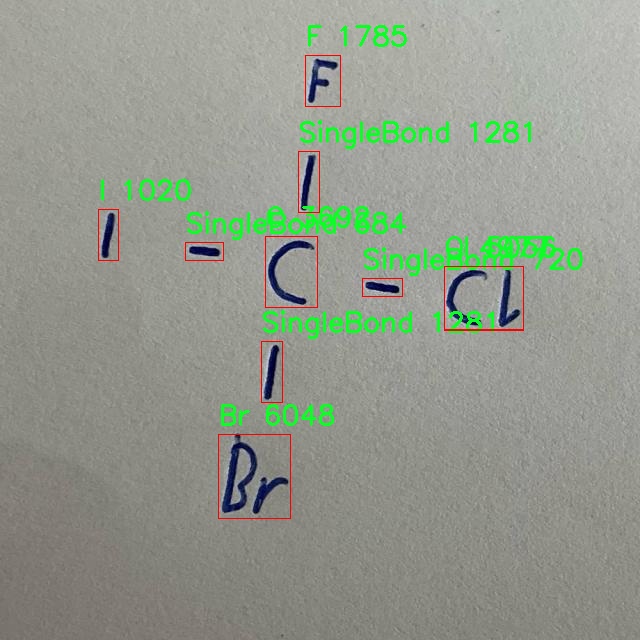 F 1785
F
SingleBond 1281
I 1020
SingleBond 684
I
C
SingleBond 720
Cl
SingleBond 1281
Br 6048
Br